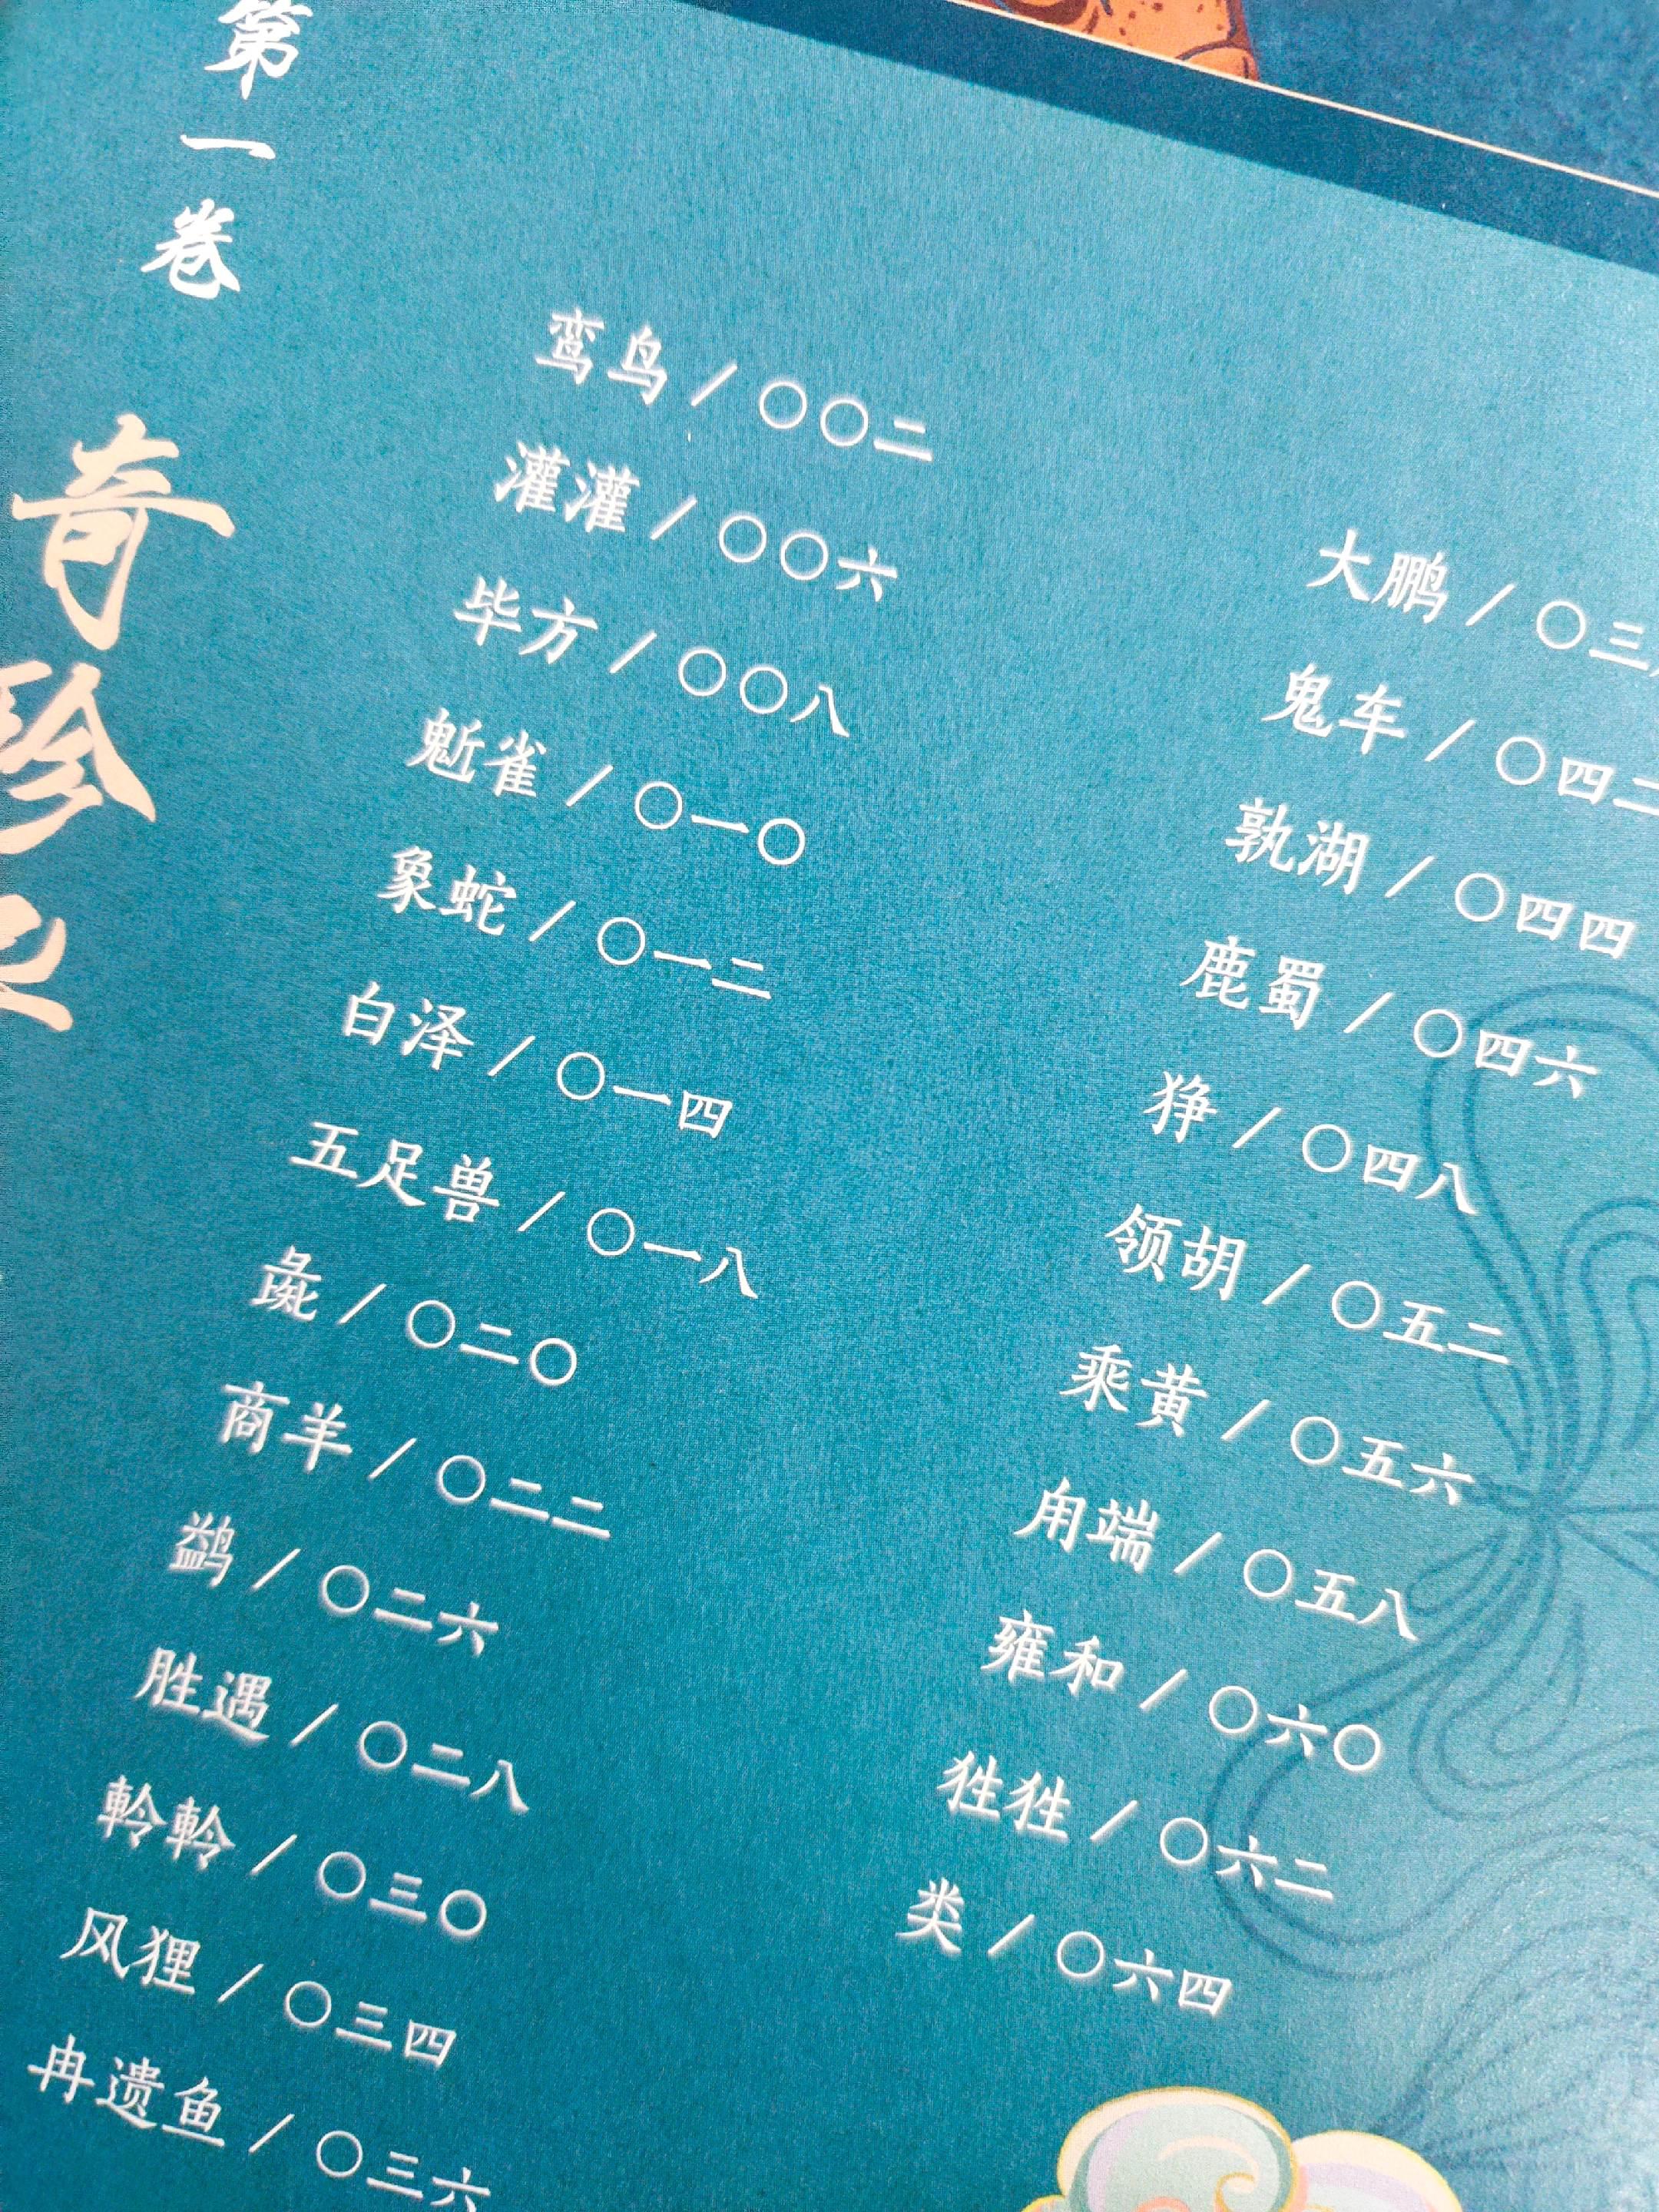 第一卷
奇珍
鸾鸟/〇〇二
灌灌/〇〇六
毕方/〇〇八
鬿雀/〇一〇
象蛇/〇一二
白泽/〇一四
五足兽/〇一八
彘/〇二〇
商羊/〇二二
鹢/〇二六
胜遇/〇二八
軨軨/〇三〇
风狸/〇三四
冉遗鱼/〇三六
大鹏/〇三
鬼车/〇四二
孰湖/〇四四
鹿蜀/〇四六
狰/〇四八
领胡/〇五二
乘黄/〇五六
甪端/〇五八
雍和/〇六〇
狌狌/〇六二
类/〇六四